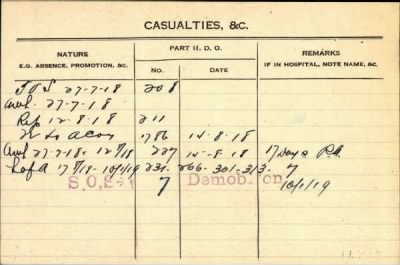 CASUALTIES, &C.
NATURE
E.G. ABSENCE, PROMOTION, &C.
PART II. D. O.
NO. DATE
REMARKS
IF IN HOSPITAL, NOTE NAME, &C.
TOS 27-7-18 208
Awl. 27-7-18
Rep 12-8-18 211
to 786 14-8-18
Awl 27-7-18- 227 14-8-18 17 Days P.A.
LofA 10/1/19 231- 266- 301-313- 7
S.O.S- 7 Demob 10/1/19